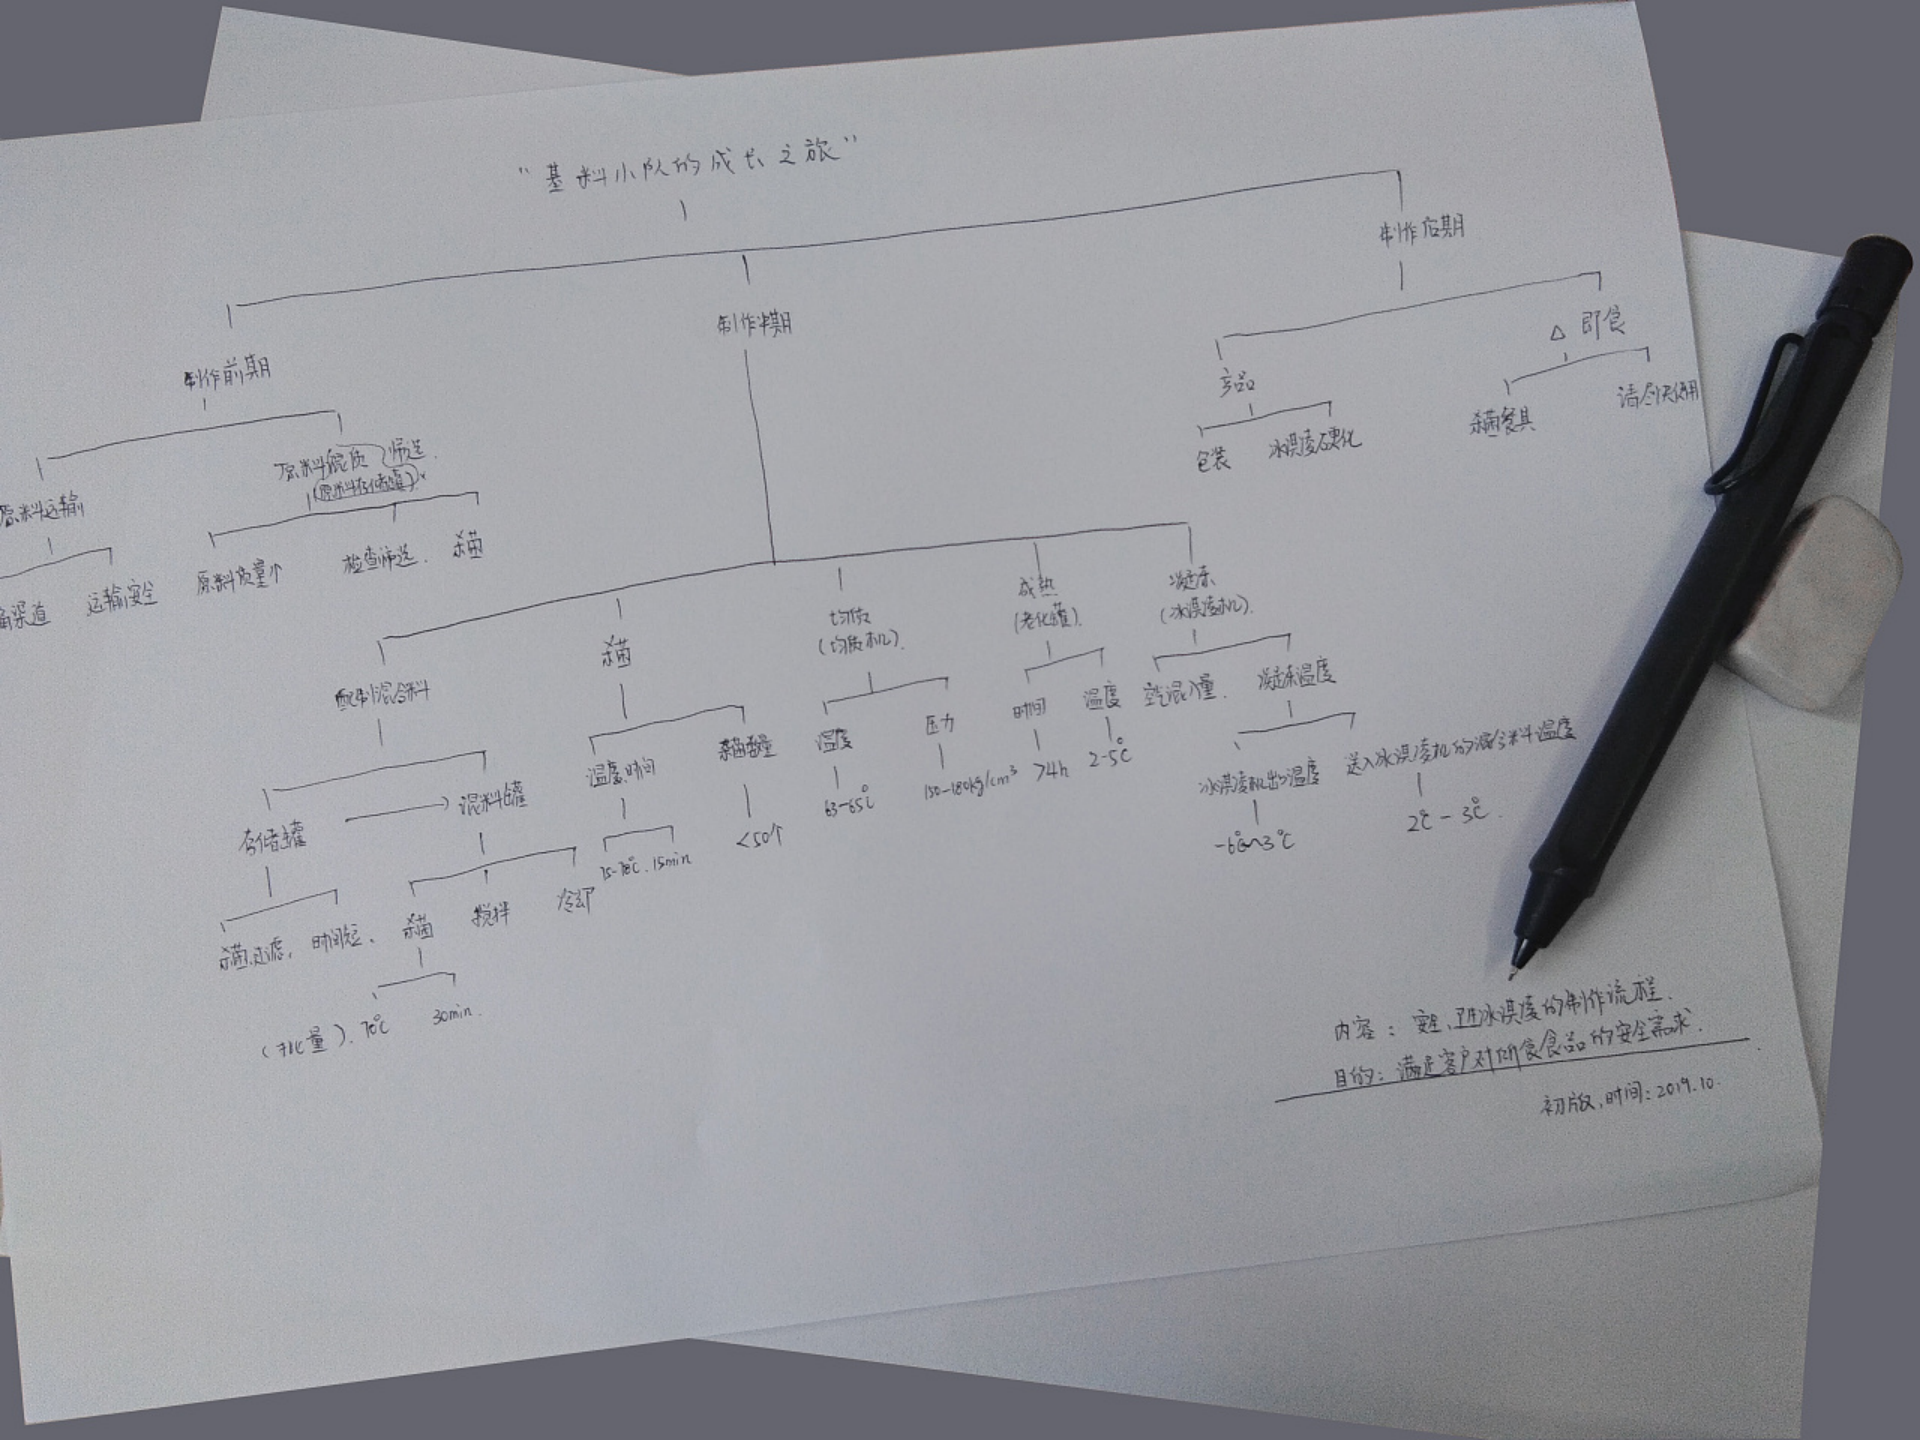 “基料小队的成长之旅”
制作后期
制作中期
制作前期
△ 即食
产品
请尽快使用
杀菌餐具
包装
冰淇凌硬化
原料混质 筛选.
(原料存储罐)
原料运输
渠道
运输安全
原料质量个
检查筛选.
杀菌
配制混合料
杀菌
均质
(均质机).
成熟
(老化罐).
凝冻
(冰淇凌机).
存储罐
混料罐
温度.时间
杀菌数量
温度
压力
时间
温度
空气混入量.
凝冻温度
63-65℃
150-180kg/cm³
>4h
2-5℃
冰淇凌机出口温度
送入冰淇凌机的混合料温度
<50个
75-78℃.15min
-6℃~3℃
2℃-3℃.
杀菌.过滤.
时间短.
杀菌
搅拌
冷却
70℃
30min.
内容：安全、卫生冰淇凌的制作流程.
目的：满足客户对所食食品的安全需求.
初版.时间:2019.10.